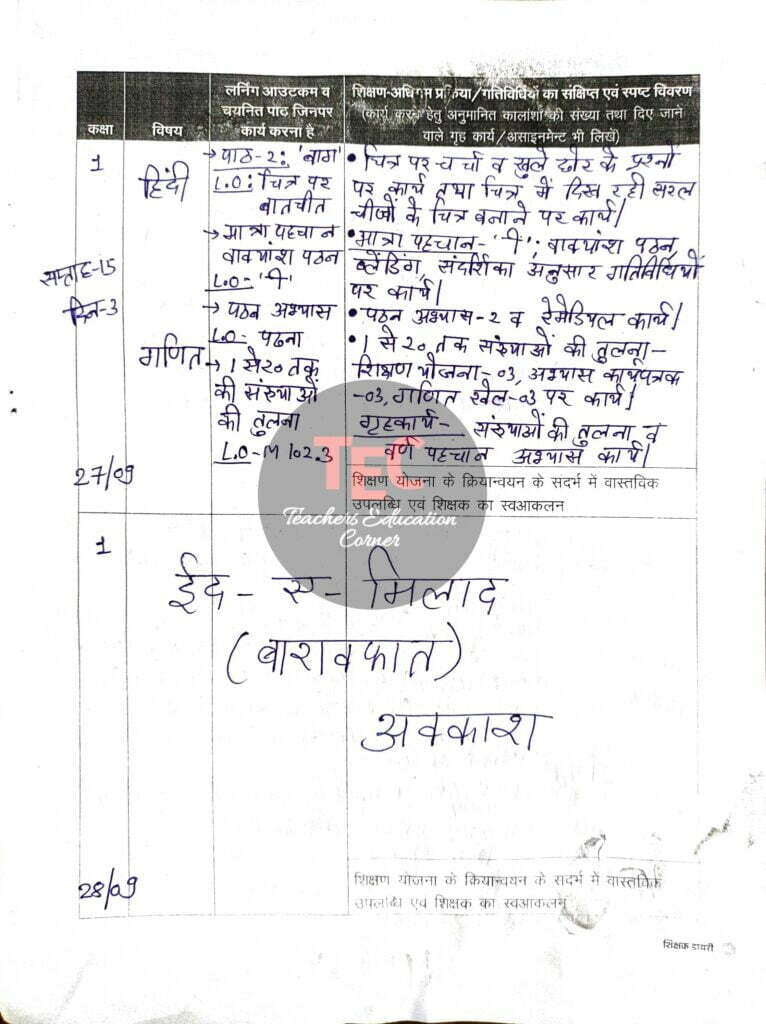 कक्षा
विषय
लर्निंग आउटकम व
चयनित पाठ जिनपर
कार्य करना है
शिक्षण-अधिगम प्रक्रिया/गतिविधियों का संक्षिप्त एवं स्पष्ट विवरण
(कार्य करने हेतु अनुमानित कालांशों की संख्या तथा दिए जाने
वाले गृह कार्य/असाइनमेंट भी लिखें)
1
हिंदी
सप्ताह-15
दिन-3
गणित
27/09
→ पाठ-2: 'बाग'
L.O: चित्र पर
बातचीत
→ मात्रा पहचान
वाक्यांश पठन
L.O- 'ी'
→ पठन अभ्यास
L.O- पढना
→ 1 से 20 तक
की संख्याओं
की तुलना
L.O-M 102.3
• चित्र पर चर्चा व खुले छोर के प्रश्नों
पर कार्य तथा चित्र में दिख रही सरल
चीजों के चित्र बनाने पर कार्य।
• मात्रा पहचान- 'ी'; वाक्यांश पठन,
ब्लेंडिंग, संदर्शिका अनुसार गतिविधियों
पर कार्य।
• पठन अभ्यास-2 व रेमेडियल कार्य।
• 1 से 20 तक संख्याओं की तुलना-
शिक्षण योजना-03, अभ्यास कार्यपत्रक
-03, गणित खेल-03 पर कार्य।
गृहकार्य- संख्याओं की तुलना व
वर्ण पहचान अभ्यास कार्य।
शिक्षण योजना के क्रियान्वयन के सदर्भ में वास्तविक
उपलब्धि एवं शिक्षक का स्वआकलन
TEC
Teachers Education
Corner
1
ईद - ए - मिलाद
(बारावफात)
अवकाश
28/09
शिक्षण योजना के क्रियान्वयन के सदर्भ में वास्तविक
उपलब्धि एवं शिक्षक का स्वआकलन
शिक्षक डायरी